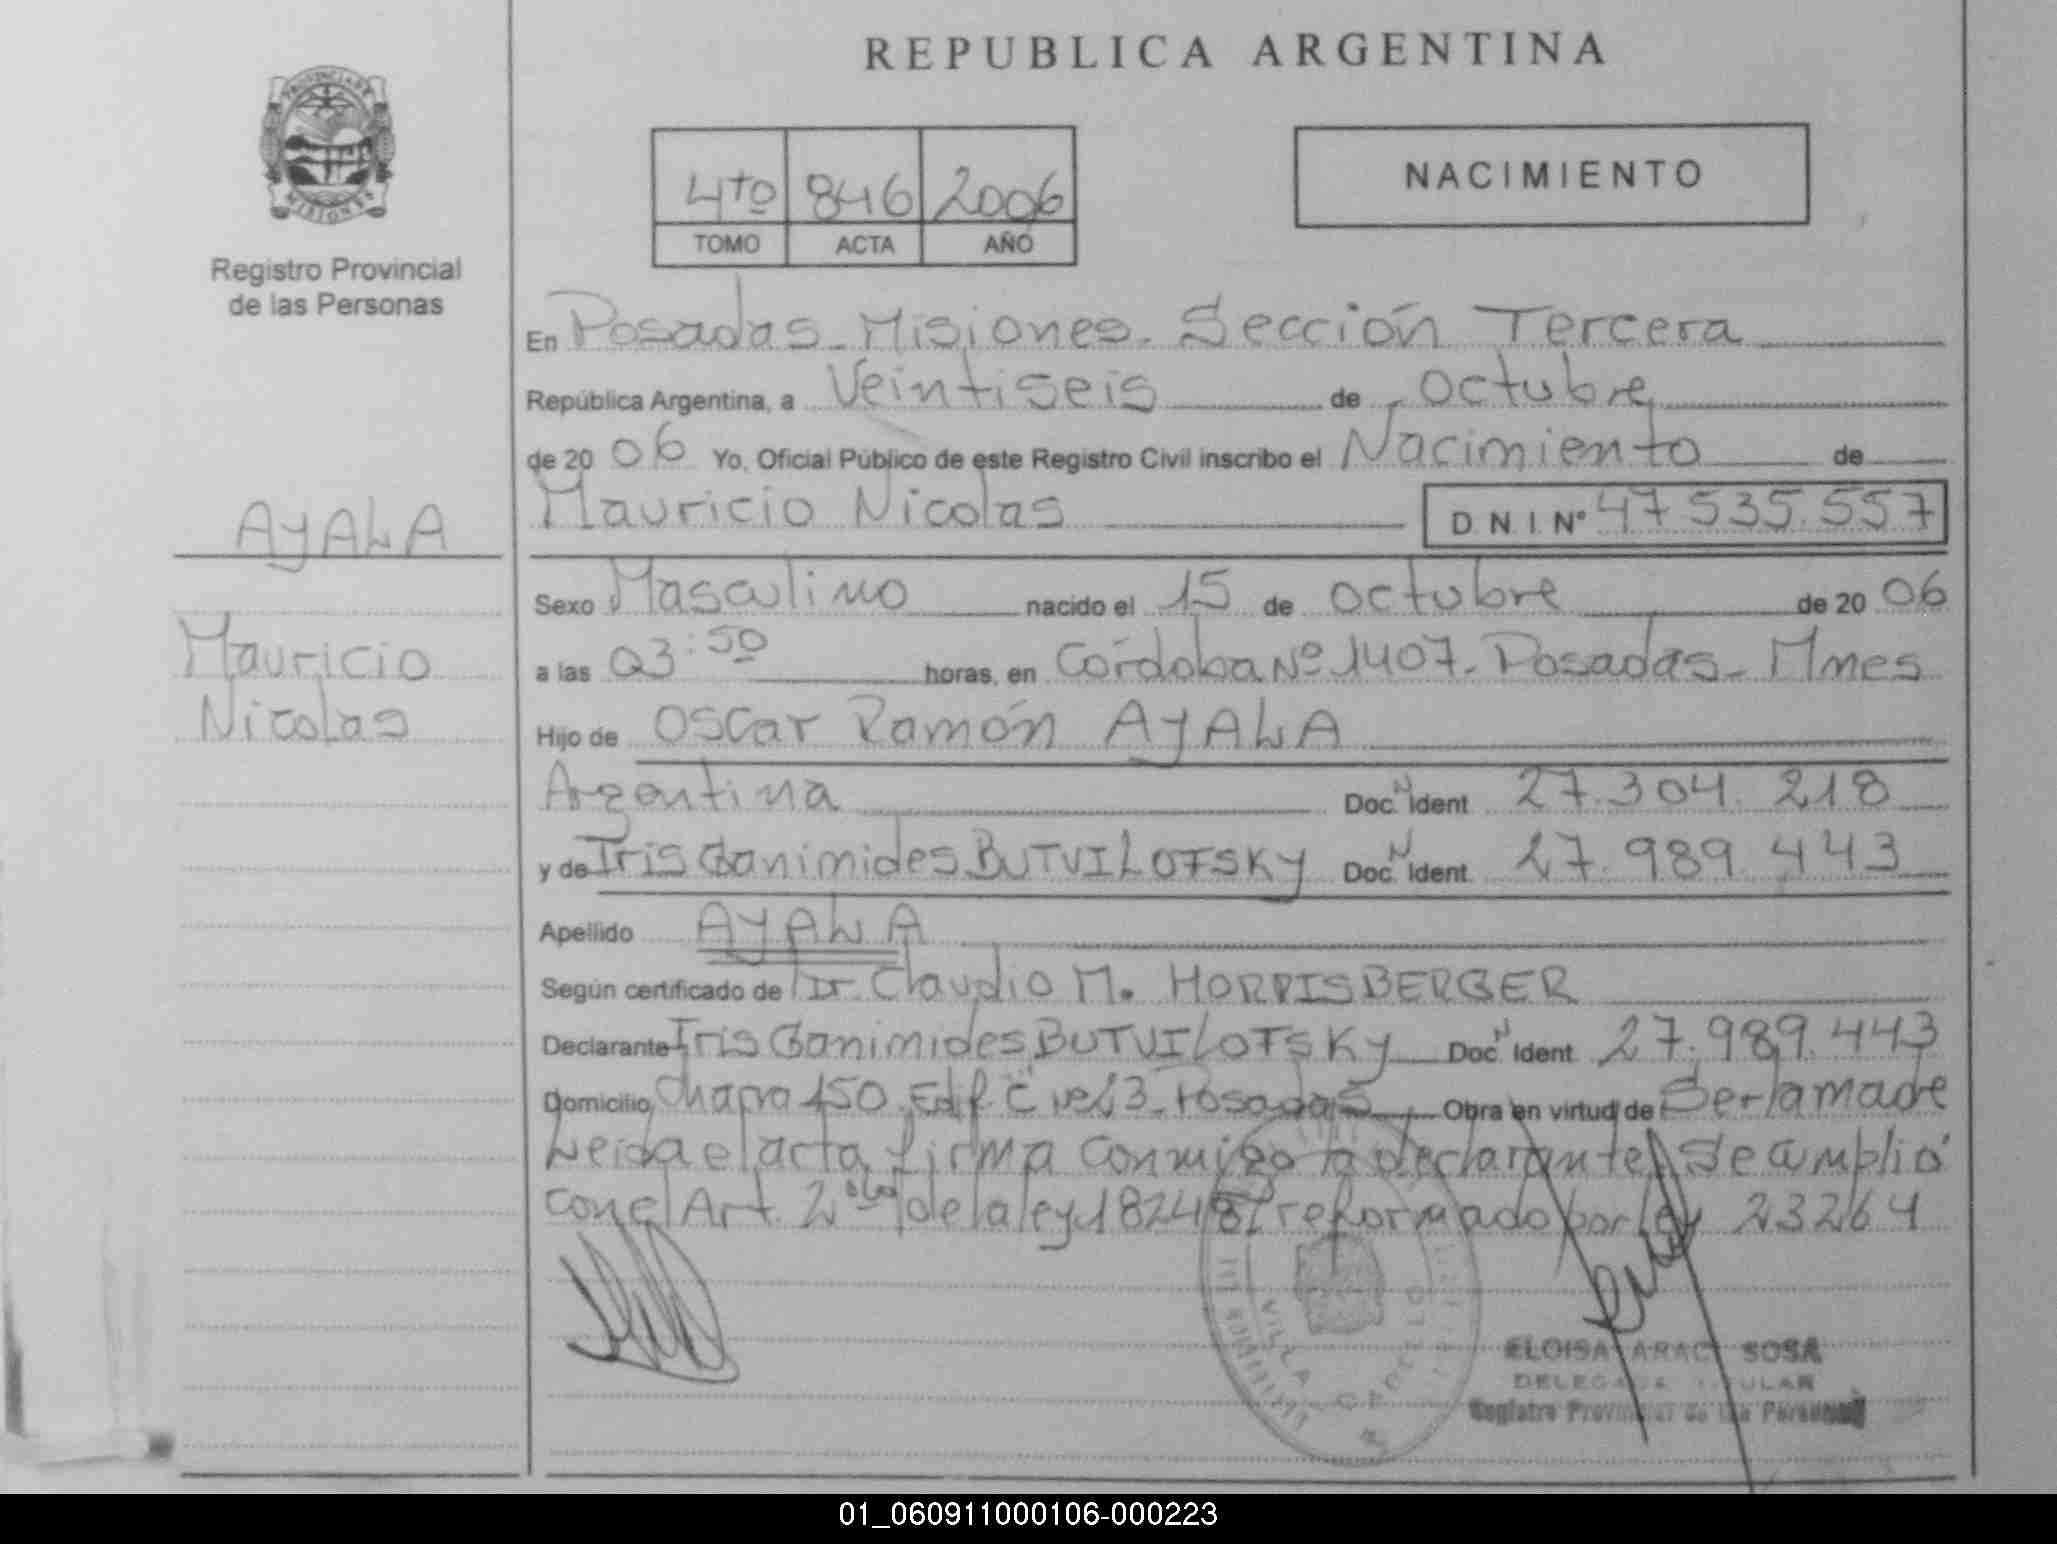 REPUBLICA ARGENTINA
PROVINCIA DE MISIONES
Registro Provincial
de las Personas
4to 846 2006
TOMO ACTA AÑO
NACIMIENTO
En Posadas - Misiones - Sección Tercera
República Argentina, a Veintiseis de octubre
de 20 06 Yo, Oficial Público de este Registro Civil inscribo el Nacimiento de
Mauricio Nicolas D.N.I. Nº 47 535.557
AYALA
Mauricio
Nicolas
Sexo Masculino nacido el 15 de octubre de 20 06
a las 03:50 horas, en Córdoba Nº 1407 - Posadas - Mnes
Hijo de Oscar Ramón AYALA
Argentina Doc. N Ident 27.304.218
y de Iris Ganimides BUTVILOFSKY Doc. N Ident. 27.989.443
Apellido AYALA
Según certificado de Dr. Claudio M. HORRISBERGER
Declarante Iris Ganimides BUTVILOFSKY Doc N Ident 27.989.443
Domicilio Chacra 150 Edf. C Posadas Obra en virtud de Ser la madre
Leida el acta, firma conmigo la declarante. Se cumplió
con el Art. 2 de la ley 18248 reformado por ley 23264
VILLA CABELLO
ELOISA ARAC SOSA
DELEGADA TITULAR
Registro Provincial de las Personas
01_060911000106-000223